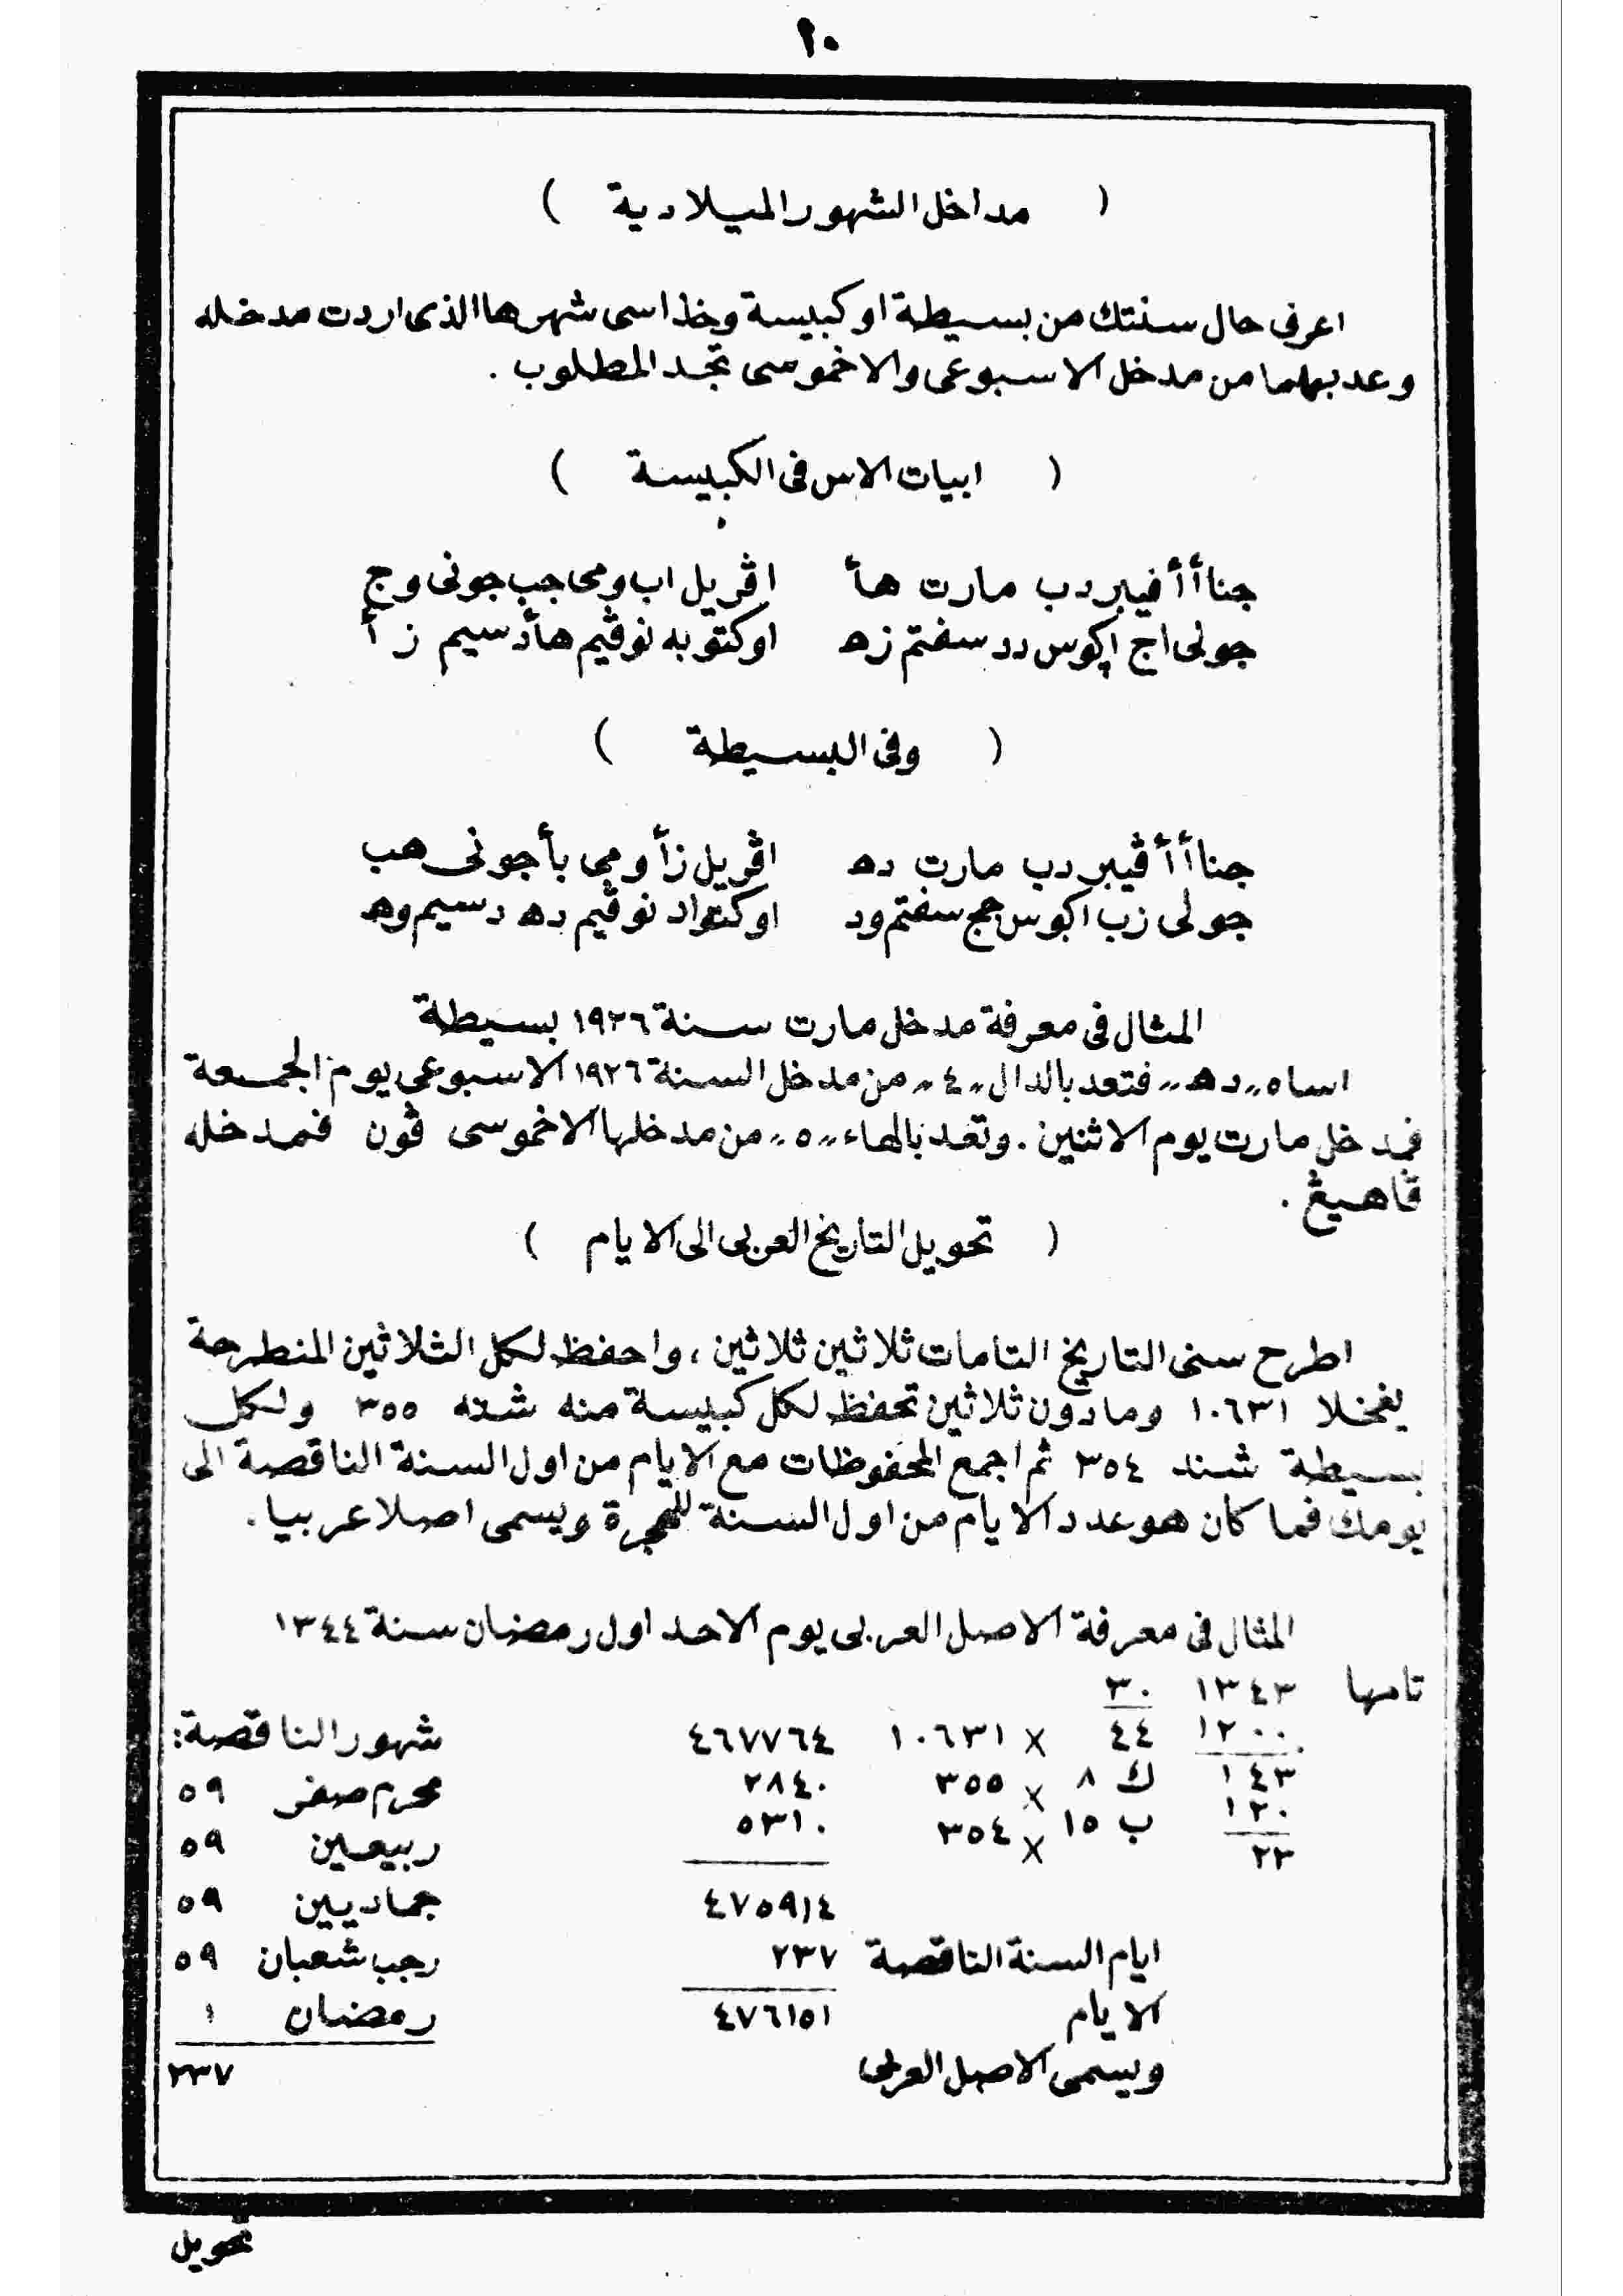 ١٠
( مداخل الشهور الميلادية )
اعرف حال سنتك من بسيطة او كبيسة وخذ اسى شهرها الذى اردت مدخله
وعد بهما من مدخل الاسبوعى والاخموسى تجد المطلوب .
( ابيات الاس فى الكبيسة )
جنا أأ فيبر دب مارت هأ اڤريل اب ومى جب جونى وج
جولى اج اڮوس دد سفتم زه اوكتوبه نوڤيم هأ دسيم زأ
( وفى البسيطة )
جنا أأ ڤيبر دب مارت ده اڤريل زأ ومى بأ جونى هب
جولى زب اكوس جج سفتم ود اوكتواد نوڤيم ده دسيم وه
المثال فى معرفة مدخل مارت سنة ١٩٢٦ بسيطة
اساه „ ده „ فتعد بالدال „ ٤ „ من مدخل السنة ١٩٢٦ الاسبوعى يوم الجمعة
فمدخل مارت يوم الاثنين . وتعد بالهاء „ ٥ „ من مدخلها الاخموسى ڤون فمدخله
ڤاهيڠ .
( تحويل التاريخ العربى الى الايام )
اطرح سنى التاريخ التامات ثلاثين ثلاثين ، واحفظ لكل الثلاثين المنطرحة
يفخلا ١٠٦٣١ ومادون ثلاثين تحفظ لكل كبيسة منه شنه ٣٥٥ ولكل
بسيطة شند ٣٥٤ ثم اجمع المحفوظات مع الايام من اول السنة الناقصة الى
يومك فما كان هو عدد الايام من اول السنة للهجرة ويسمى اصلا عربيا .
المثال فى معرفة الاصل العربى يوم الاحد اول رمضان سنة ١٣٤٤
تامها ١٣٤٣ ٣٠
١٢٠٠ ٤٤ × ١٠٦٣١ ٤٦٧٧٦٤ شهور الناقصة:
١٤٣ ك ٨ × ٣٥٥ ٢٨٤٠ محرم صفر ٥٩
١٢٠ ب ١٥ × ٣٥٤ ٥٣١٠ ربيعين ٥٩
٢٣
٤٧٥٩١٤ جماديين ٥٩
ايام السنة الناقصة ٢٣٧ رجب شعبان ٥٩
الايام ٤٧٦١٥١ رمضان ١
ويسمى الاصل العربى ٢٣٧
تحويل